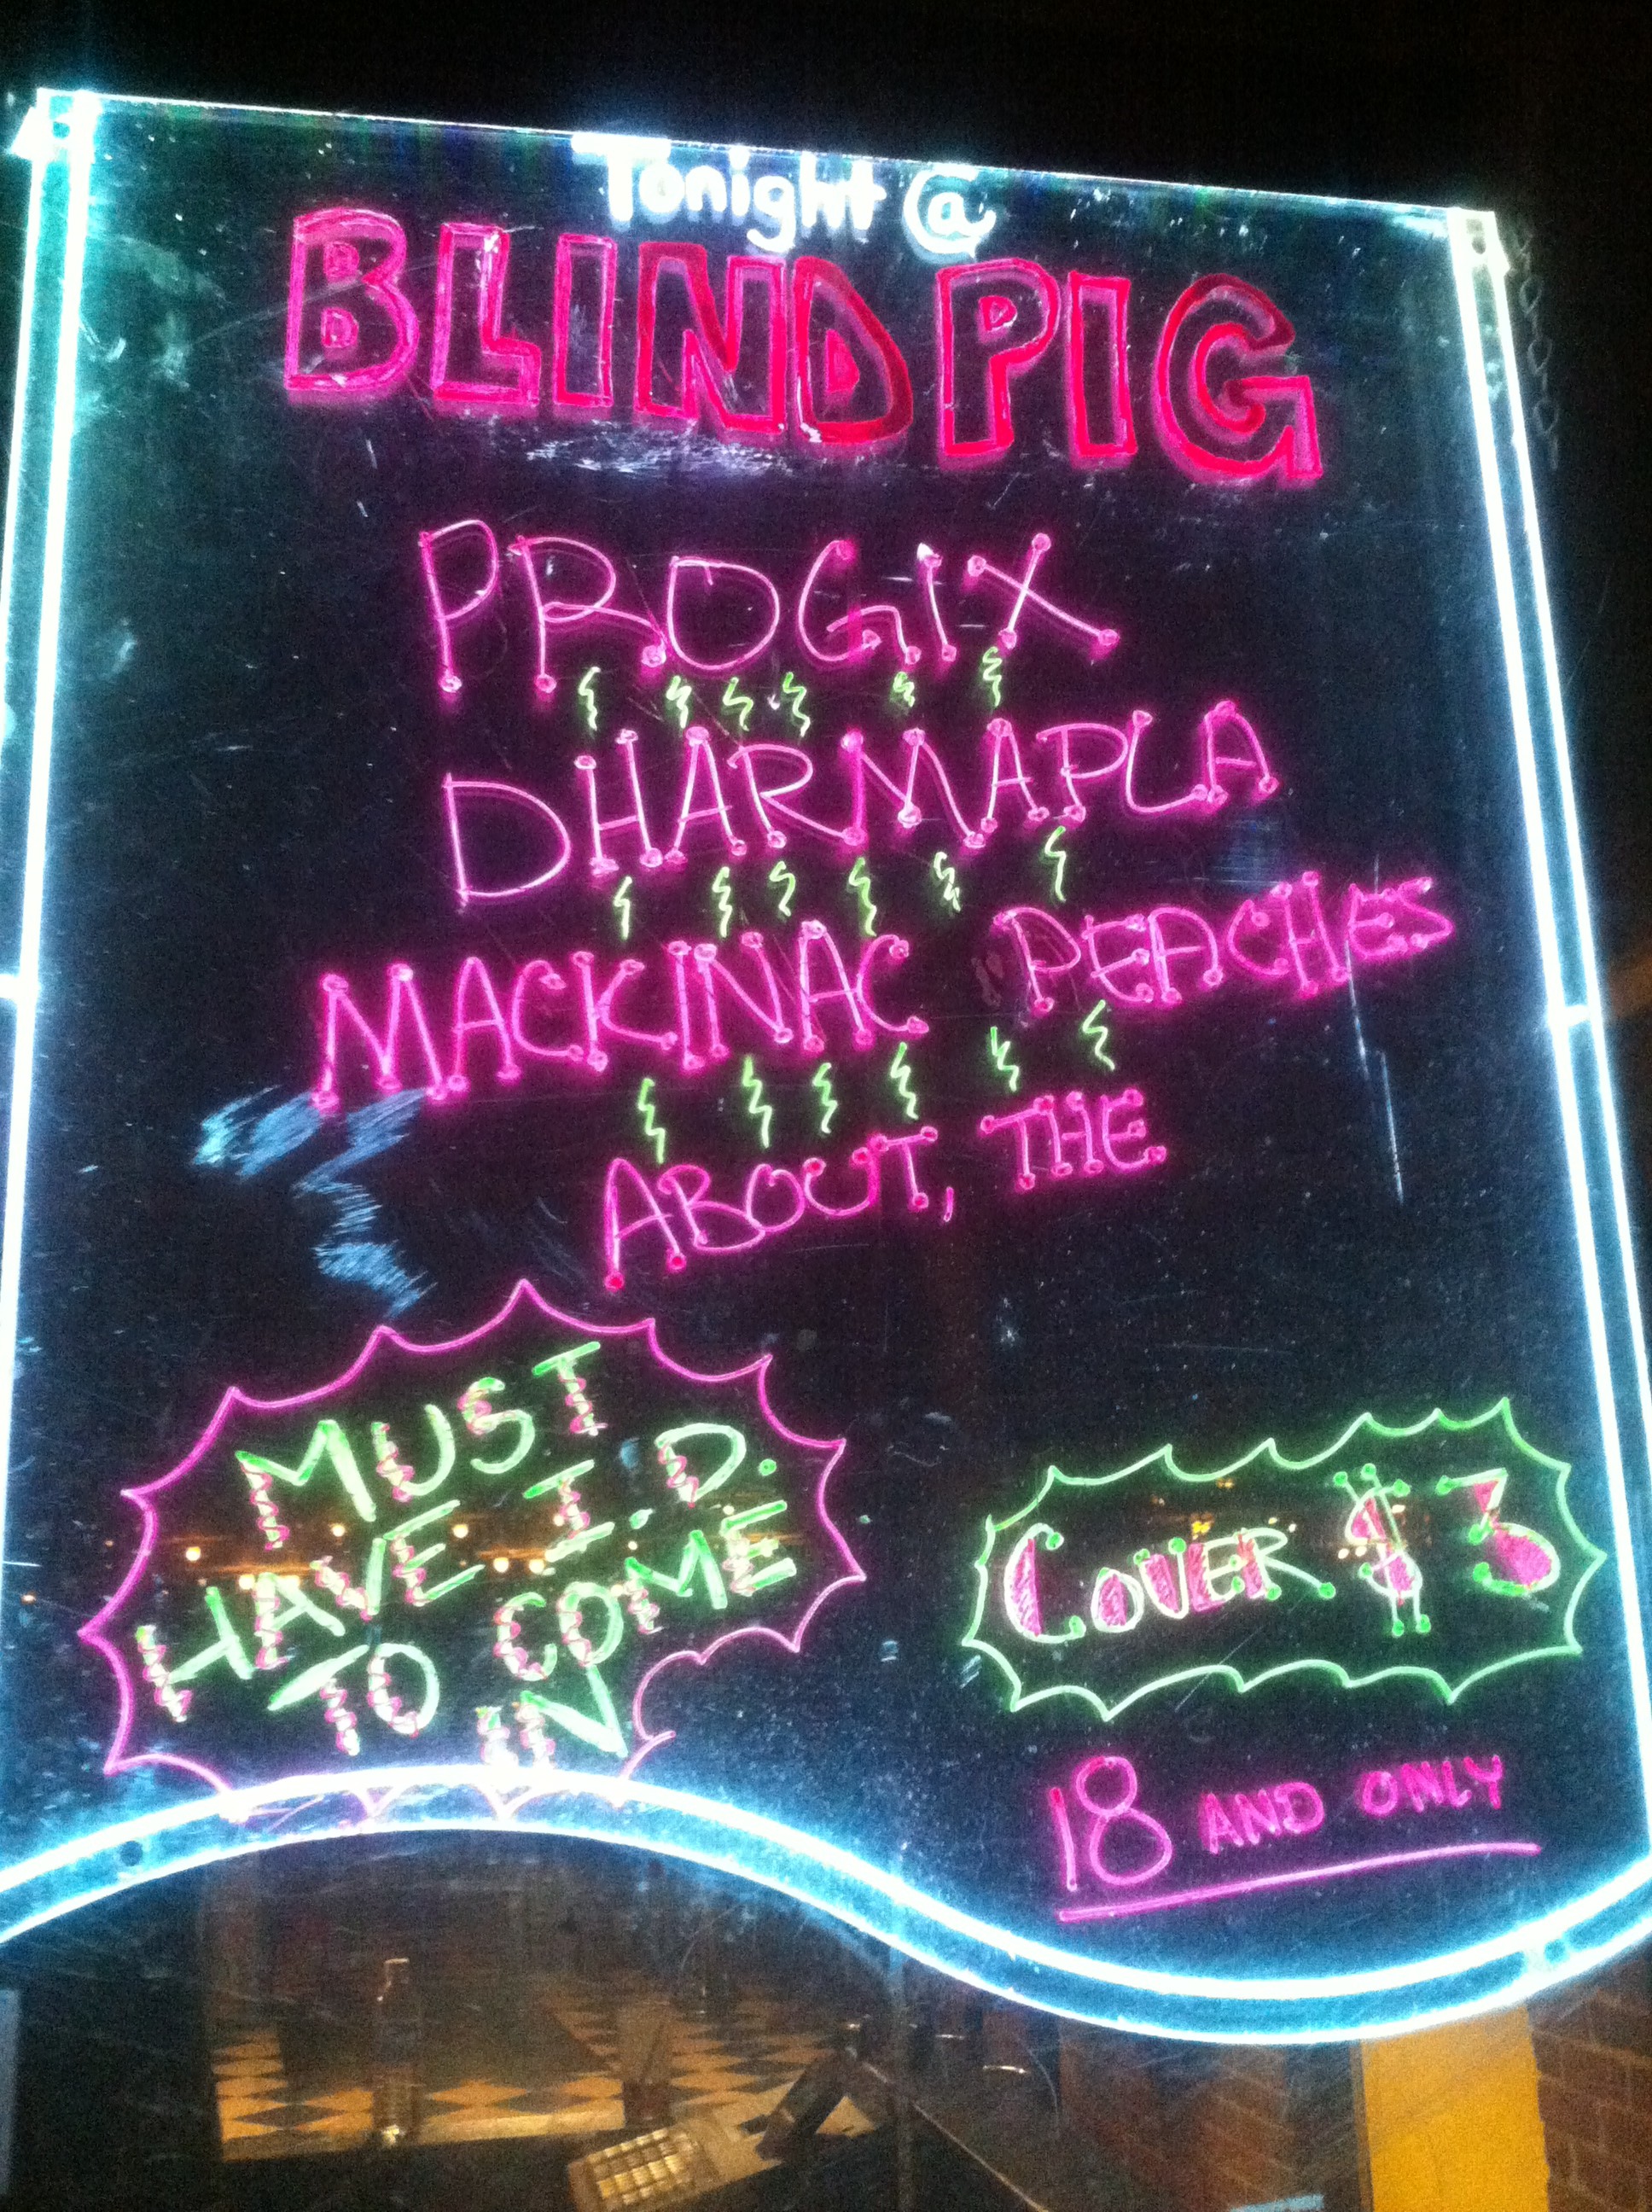 Tonight @
BLIND PIG
PROGIX
DHARMAPLA
MACKINAC PEACHES
ABOUT, THE
MUST
HAVE I.D.
TO COME
IN
COVER $3
18 AND ONLY